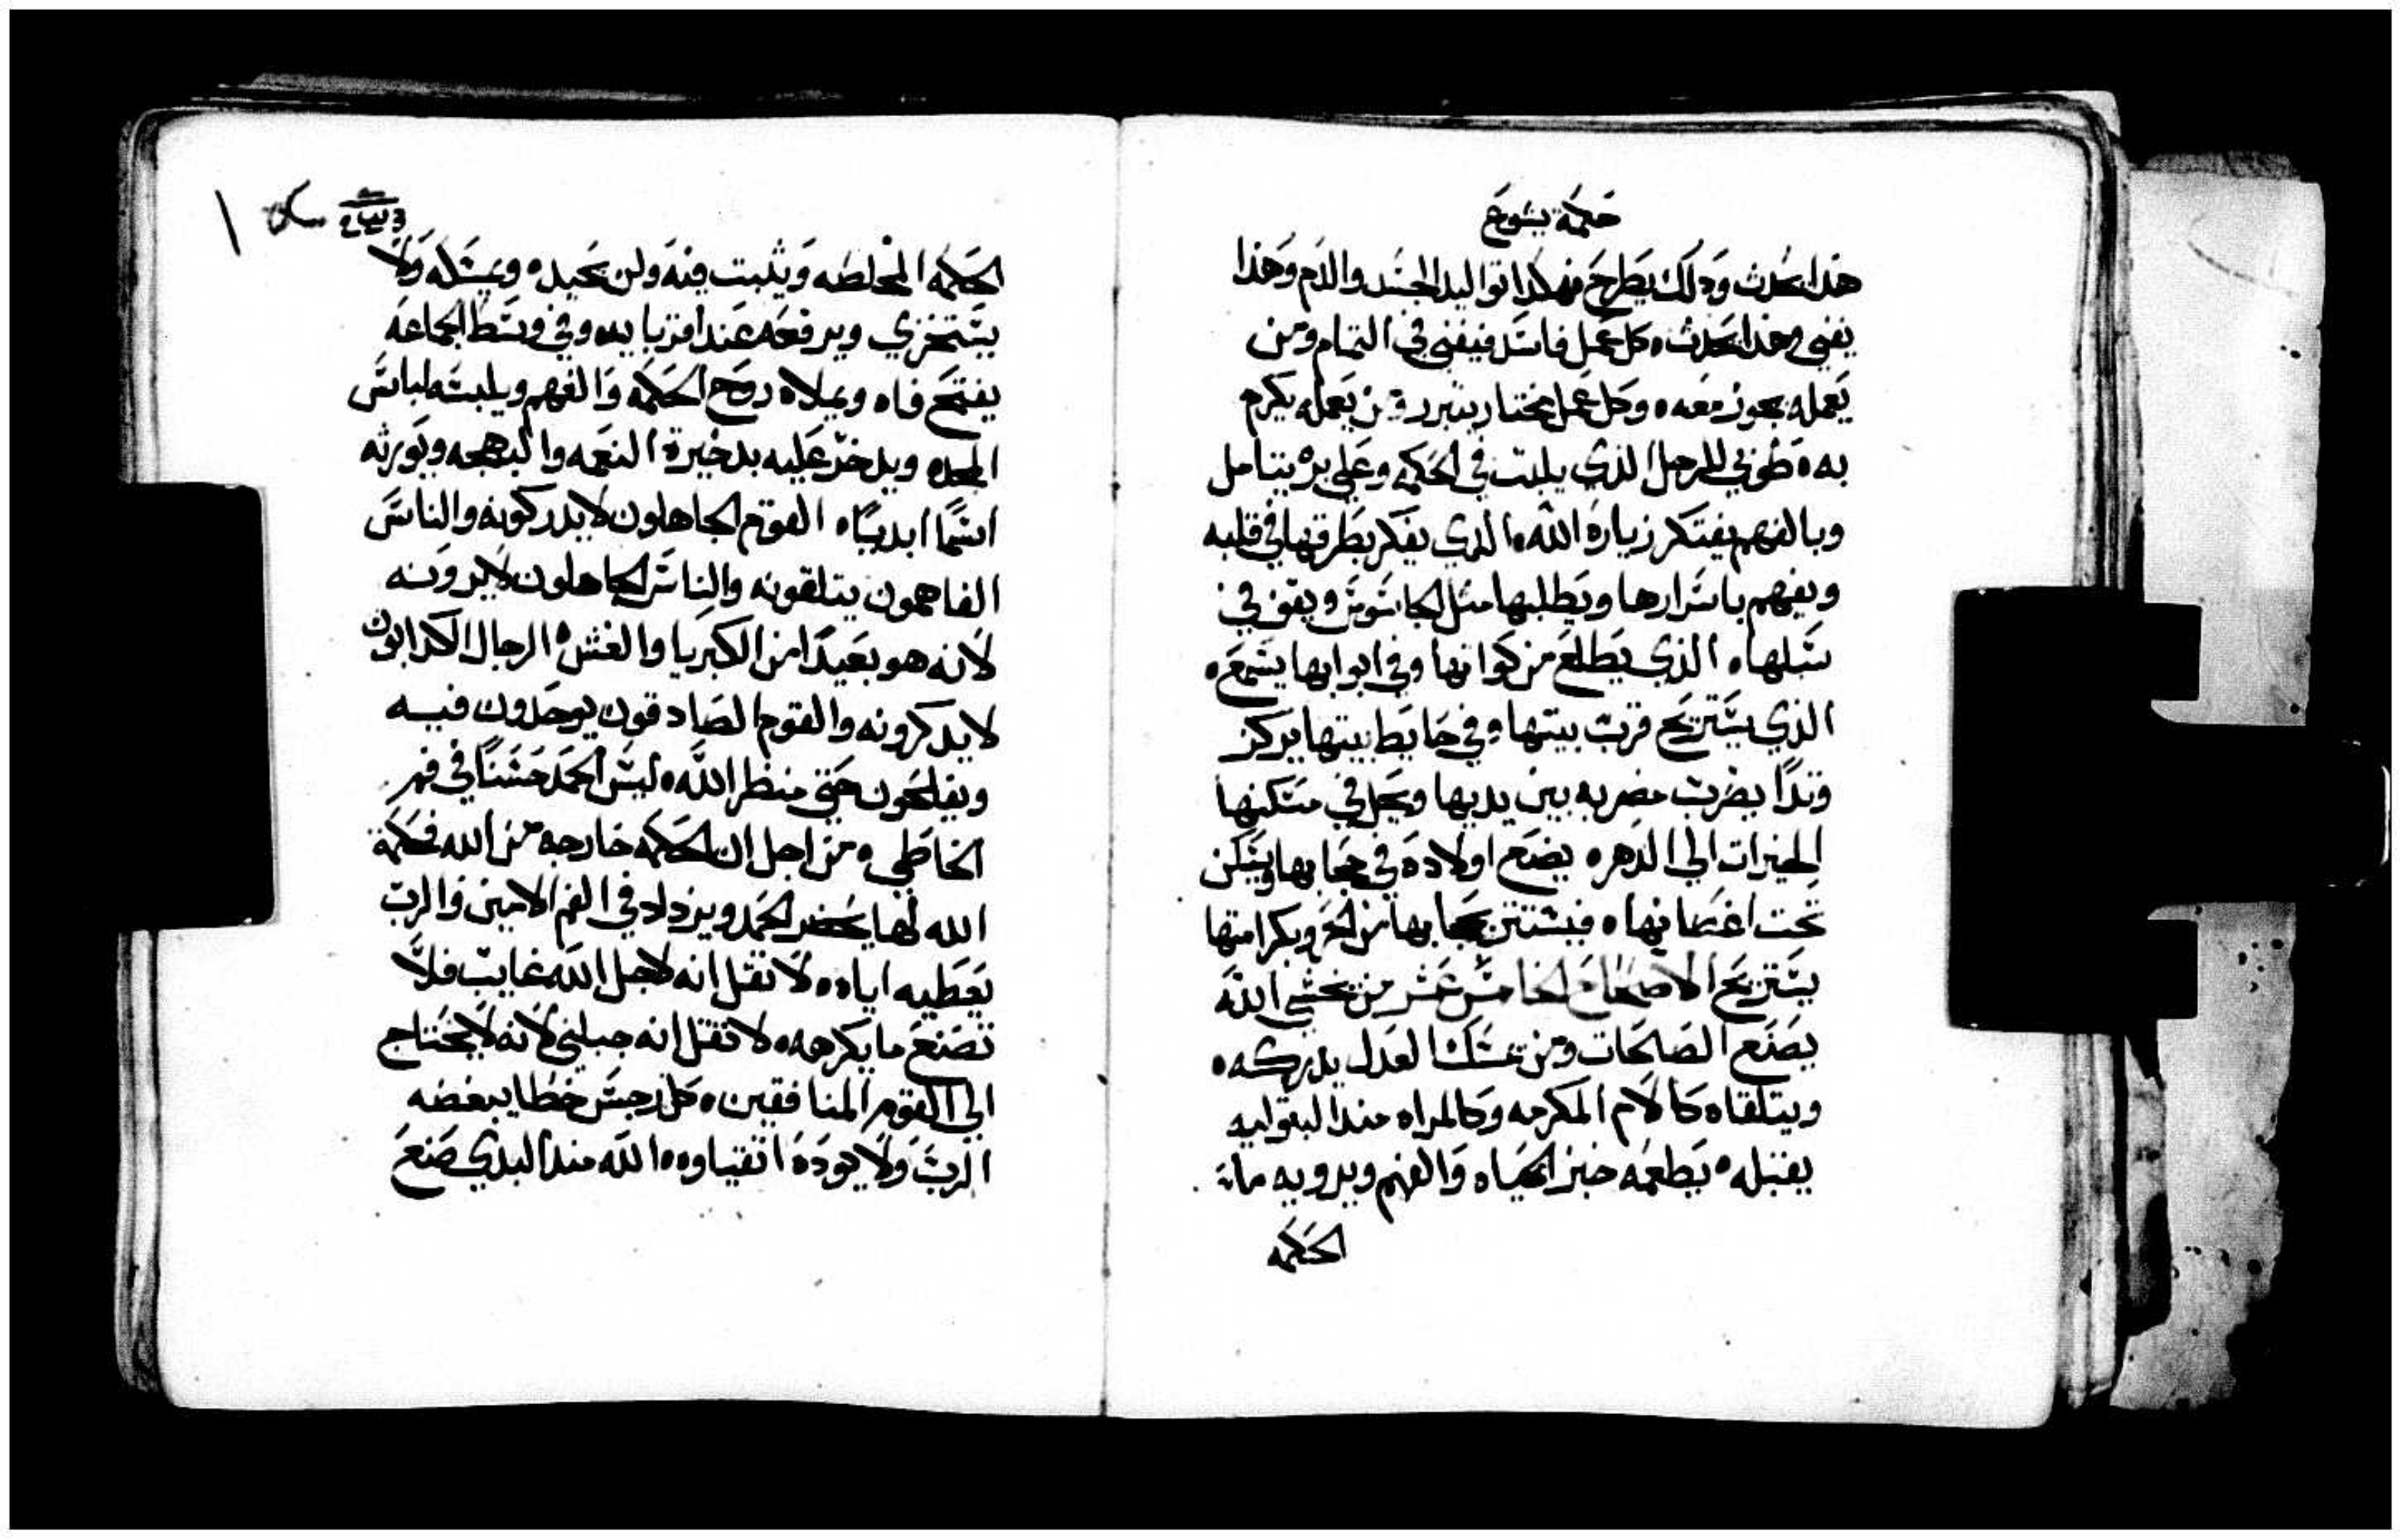 حكمة يشوع
هذا يحدث وذلك يطرح فهكذا تواليد الجسد والدم وهذا
يفني وهذا يحدث ه كل عمل فاسد فيفني في التمام ومن
يعمله يجوز معه ه وكل عمل مختار يتبرر ومن يعمله يكرم
به ه طوبي للرجل الذي يلبث في الحكمه وعلي بره يتامل
وبالفهم يفتكر زيارة الله ه الذي يفكر بطرقها في قلبه
ويفهم باسرارها ويطلبها مثل الجاسوس ويقف في
سبلها ه الذي يطلع من كواتها وفي ابوابها يسمع ه
الذي يستريح قرب بيتها وفي حايط بيتها يركز
وتدا يضرب مضربه بين يديها ويحل في مسكنها
الخيرات الي الدهر ه يضع اولاده في حجابها ويسكن
تحت اغصانها ه فيستتر بحجابها من الحر وبكرامتها
يستريح الاصحاح الخامس عشر من يخشي الله
يصنع الصالحات ومن يمسك العدل يدركه ه
ويتلقاه كالام المكرمه وكالمراه منذ البتوليه
يقتبله ه يطعمه خبز الحياه والفهم ويرويه ماء
الحكمه
الحكمه المخلطه ويثبت فيه ولن يحيد ه ويمسكه ولا
يستخزي ويرفعه عند اقربايه ه وفي وسط الجماعه
يفتح فاه ويملاه روح الحكمه والفهم ويلبسه لباس
المجد ه ويدخر عليه بدخيرة النعمه والبهجه ويورثه
اسما ابديا ه القوم الجاهلون لا يدركونه والناس
الفاهمون يتلقونه والناس الجاهلون لا يرونه
لانه هو بعيدا من الكبريا والغش ه الرجال الكدابون
لا يدكرونه والقوم الصادقون يوجدون فيه
ويفلحون حتي منظر الله ه ليس الحمد حسنا في فم
الخاطي ه من اجل ان الحكمه خارجه من الله فحكمة
الله لها يحضر الحمد ويزداد في الفم الامين والرب
يعطيه اياه ه لا تقل انه لاجل الله غايب فلا
تصنع ما يكرهه ه لا تقل انه جبلني لانه لا يحتاج
الي القوم المنافقين ه كل رجس خطا يبغضه
الرب ولا يوده اتقياوه ه الله منذ البدي صنع